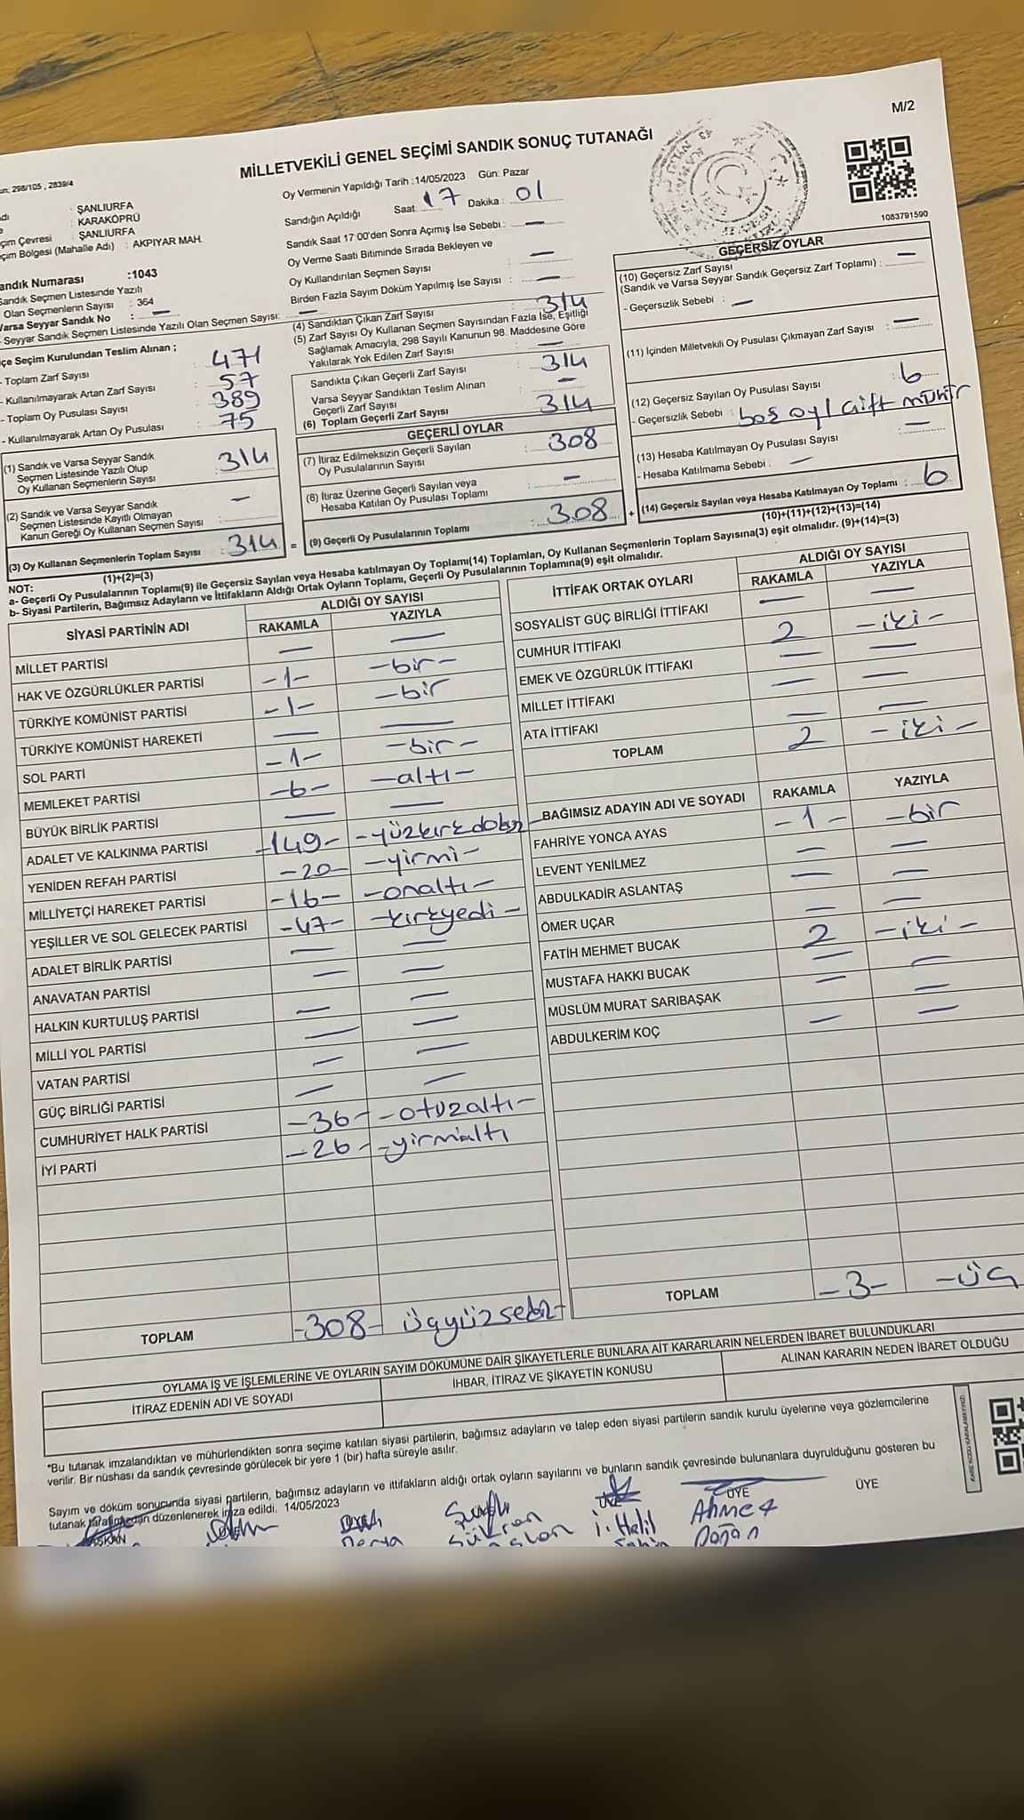 M/2
MİLLETVEKİLİ GENEL SEÇİMİ SANDIK SONUÇ TUTANAĞI
298/105 , 2839/4
Oy Vermenin Yapıldığı Tarih :14/05/2023 Gün: Pazar
Sandığın Açıldığı Saat 17 Dakika 01
1083791590
: ŞANLIURFA
: KARAKÖPRÜ
çim Çevresi : ŞANLIURFA
çim Bölgesi (Mahalle Adı) : AKPIYAR MAH.
andık Numarası :1043
Sandık Seçmen Listesinde Yazılı
Olan Seçmenlerin Sayısı : 364
Varsa Seyyar Sandık No : —
- Seyyar Sandık Seçmen Listesinde Yazılı Olan Seçmen Sayısı: —
Sandık Saat 17:00'den Sonra Açımış İse Sebebi : —
Oy Verme Saati Bitiminde Sırada Bekleyen ve
Oy Kullandırılan Seçmen Sayısı : —
Birden Fazla Sayım Döküm Yapılmış İse Sayısı : —
çe Seçim Kurulundan Teslim Alınan ;
- Toplam Zarf Sayısı : 471
- Kullanılmayarak Artan Zarf Sayısı : 57
- Toplam Oy Pusulası Sayısı : 389
- Kullanılmayarak Artan Oy Pusulası : 75
(1) Sandık ve Varsa Seyyar Sandık
Seçmen Listesinde Yazılı Olup
Oy Kullanan Seçmenlerin Sayısı : 314
(2) Sandık ve Varsa Seyyar Sandık
Seçmen Listesinde Kayıtlı Olmayan
Kanun Gereği Oy Kullanan Seçmen Sayısı : —
(3) Oy Kullanan Seçmenlerin Toplam Sayısı : 314
(1)+(2)=(3)
(4) Sandıktan Çıkan Zarf Sayısı : 314
(5) Zarf Sayısı Oy Kullanan Seçmen Sayısından Fazla İse, Eşitliği
Sağlamak Amacıyla, 298 Sayılı Kanunun 98. Maddesine Göre
Yakılarak Yok Edilen Zarf Sayısı : —
Sandıkta Çıkan Geçerli Zarf Sayısı : 314
Varsa Seyyar Sandıktan Teslim Alınan
Geçerli Zarf Sayısı : —
(6) Toplam Geçerli Zarf Sayısı : 314
GEÇERLİ OYLAR
(7) İtiraz Edilmeksizin Geçerli Sayılan
Oy Pusulalarının Sayısı : 308
(8) İtiraz Üzerine Geçerli Sayılan veya
Hesaba Katılan Oy Pusulası Toplamı : —
= (9) Geçerli Oy Pusulalarının Toplamı : 308 +
GEÇERSİZ OYLAR
(10) Geçersiz Zarf Sayısı
(Sandık ve Varsa Seyyar Sandık Geçersiz Zarf Toplamı) : —
- Geçersizlik Sebebi : —
(11) İçinden Milletvekili Oy Pusulası Çıkmayan Zarf Sayısı : —
(12) Geçersiz Sayılan Oy Pusulası Sayısı : 6
- Geçersizlik Sebebi : boş oy / çift mühür
(13) Hesaba Katılmayan Oy Pusulası Sayısı : —
- Hesaba Katılmama Sebebi : —
(14) Geçersiz Sayılan veya Hesaba Katılmayan Oy Toplamı : 6
(10)+(11)+(12)+(13)=(14)
NOT:
a- Geçerli Oy Pusulalarının Toplamı(9) ile Geçersiz Sayılan veya Hesaba katılmayan Oy Toplamı(14) Toplamları, Oy Kullanan Seçmenlerin Toplam Sayısına(3) eşit olmalıdır. (9)+(14)=(3)
b- Siyasi Partilerin, Bağımsız Adayların ve İttifakların Aldığı Ortak Oyların Toplamı, Geçerli Oy Pusulalarının Toplamına(9) eşit olmalıdır.
SİYASİ PARTİNİN ADI ALDIĞI OY SAYISI
RAKAMLA YAZIYLA
MİLLET PARTİSİ — —
HAK VE ÖZGÜRLÜKLER PARTİSİ -1- -bir-
TÜRKİYE KOMÜNİST PARTİSİ -1- -bir
TÜRKİYE KOMÜNİST HAREKETİ — —
SOL PARTİ -1- -bir-
MEMLEKET PARTİSİ -6- -altı-
BÜYÜK BİRLİK PARTİSİ — —
ADALET VE KALKINMA PARTİSİ -149- -yüzkırkdokuz-
YENİDEN REFAH PARTİSİ -20- -yirmi-
MİLLİYETÇİ HAREKET PARTİSİ -16- -onaltı-
YEŞİLLER VE SOL GELECEK PARTİSİ -47- -kırkyedi-
ADALET BİRLİK PARTİSİ — —
ANAVATAN PARTİSİ — —
HALKIN KURTULUŞ PARTİSİ — —
MİLLİ YOL PARTİSİ — —
VATAN PARTİSİ — —
GÜÇ BİRLİĞİ PARTİSİ — —
CUMHURİYET HALK PARTİSİ -36- -otuzaltı-
İYİ PARTİ -26- -yirmialtı
TOPLAM -308- üçyüzsekiz-
İTTİFAK ORTAK OYLARI ALDIĞI OY SAYISI
RAKAMLA YAZIYLA
SOSYALİST GÜÇ BİRLİĞİ İTTİFAKI — —
CUMHUR İTTİFAKI 2 -iki-
EMEK VE ÖZGÜRLÜK İTTİFAKI — —
MİLLET İTTİFAKI — —
ATA İTTİFAKI — —
TOPLAM 2 -iki-
BAĞIMSIZ ADAYIN ADI VE SOYADI RAKAMLA YAZIYLA
FAHRİYE YONCA AYAS -1- -bir
LEVENT YENİLMEZ — —
ABDULKADİR ASLANTAŞ — —
ÖMER UÇAR — —
FATİH MEHMET BUCAK 2 -iki-
MUSTAFA HAKKI BUCAK — —
MÜSLÜM MURAT SARIBAŞAK — —
ABDULKERİM KOÇ — —
TOPLAM -3- -üç
OYLAMA İŞ VE İŞLEMLERİNE VE OYLARIN SAYIM DÖKÜMÜNE DAİR ŞİKAYETLERLE BUNLARA AİT KARARLARIN NELERDEN İBARET BULUNDUKLARI
İTİRAZ EDENİN ADI VE SOYADI İHBAR, İTİRAZ VE ŞİKAYETİN KONUSU ALINAN KARARIN NEDEN İBARET OLDUĞU
*Bu tutanak imzalandıktan ve mühürlendikten sonra seçime katılan siyasi partilerin, bağımsız adayların ve talep eden siyasi partilerin sandık kurulu üyelerine veya gözlemcilerine
verilir. Bir nüshası da sandık çevresinde görülecek bir yere 1 (bir) hafta süreyle asılır.
Sayım ve döküm sonucunda siyasi partilerin, bağımsız adayların ve ittifakların aldığı ortak oyların sayılarını ve bunların sandık çevresinde bulunanlara duyrulduğunu gösteren bu
tutanak tarafımızdan düzenlenerek imza edildi. 14/05/2023
AŞKAN ÜYE ÜYE
Derya Şükran i. Halil Ahmet
Doğan